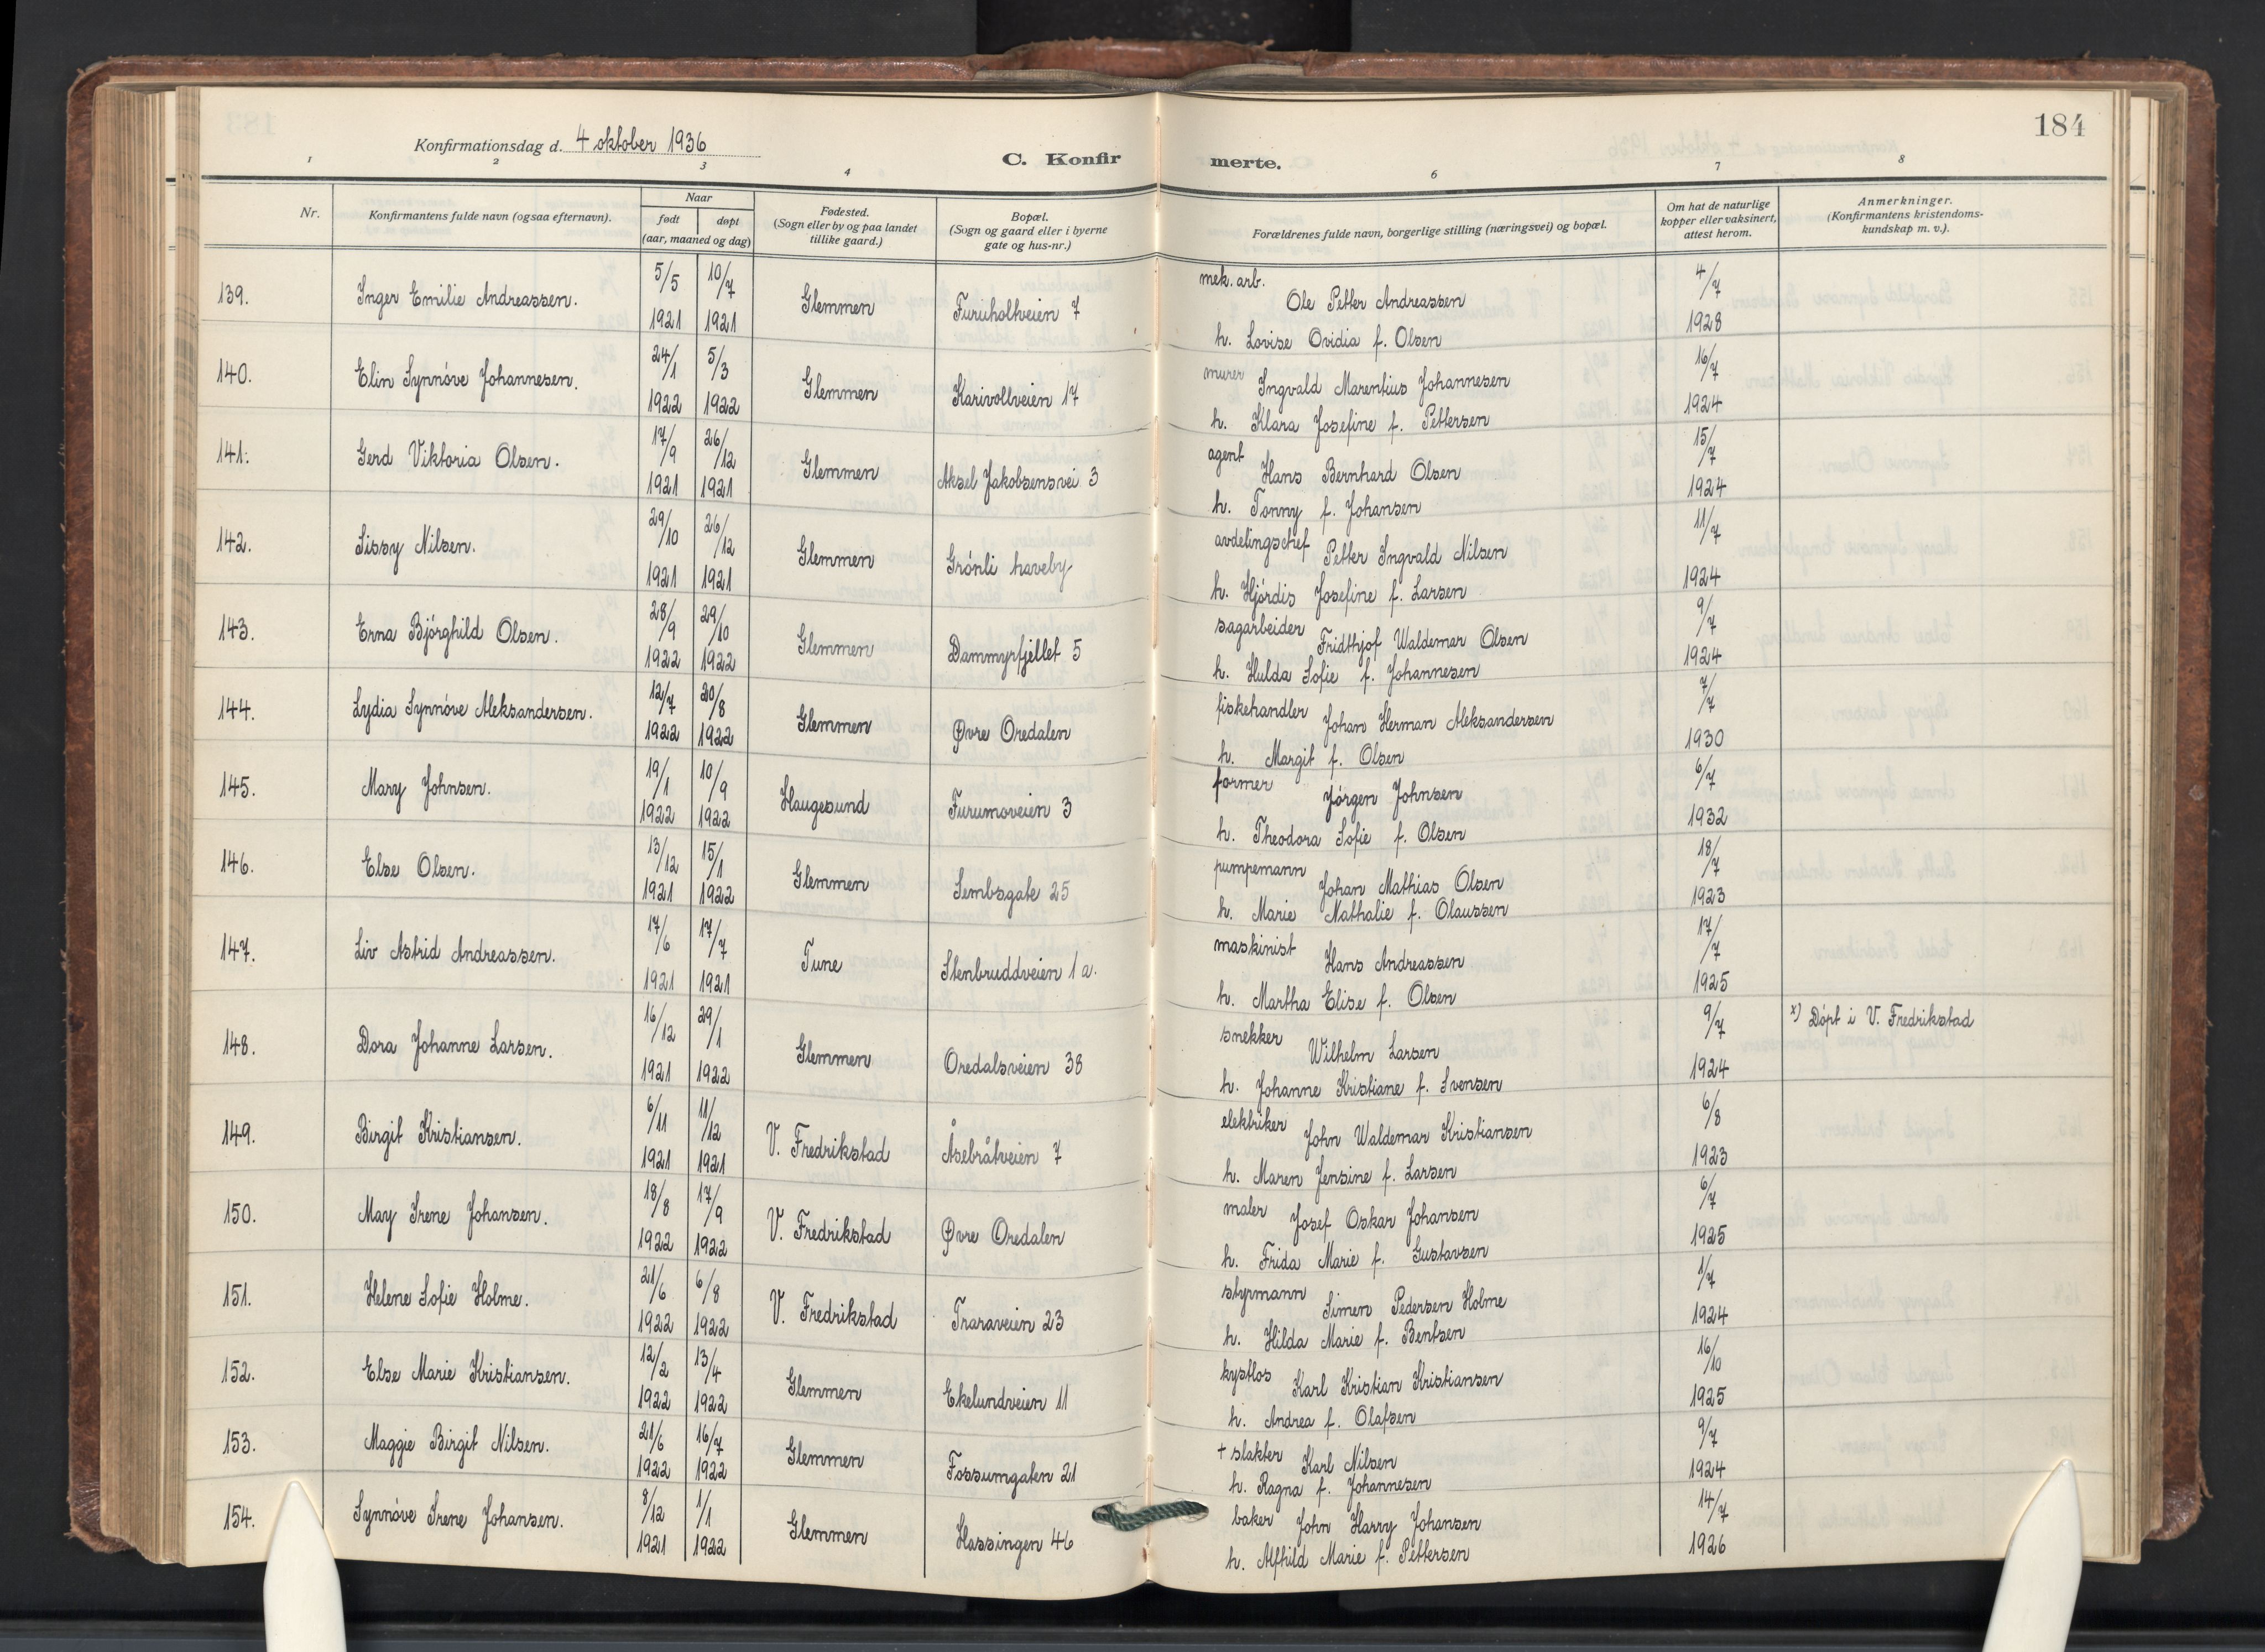 184
Konfirmationsdag d. 4 oktober 1936
C. Konfirmerte.
1 2 3 4 6 7 8
Nr.
Konfirmantens fulde navn (ogsaa efternavn).
Naar
født døpt
(aar, maaned og dag)
Fødested.
(Sogn eller by og paa landet
tillike gaard.)
Bopæl.
(Sogn og gaard eller i byerne
gate og hus-nr.)
Forældrenes fulde navn, borgerlige stilling (næringsvei) og bopæl.
Om hat de naturlige
kopper eller vaksinert,
attest herom.
Anmerkninger.
(Konfirmantens kristendoms-
kundskap m. v.).
139. Inger Emilie Andreassen. 5/5 1921 10/7 1921 Glemmen Furuholtveien 7
mek. arb. Ole Petter Andreassen 4/7
h. Lovise Ovidia f. Olsen 1928
140. Elin Synnöve Johannesen. 24/1 1922 5/3 1922 Glemmen Karivollveien 17
murer Ingvald Marentius Johannesen 16/7
h. Klara Josefine f. Pettersen 1924
141. Gerd Viktoria Olsen. 17/9 1921 26/12 1921 Glemmen Aksel Jakobsensvei 3
agent Hans Bernhard Olsen 15/7
h. Tonny f. Johansen 1924
142. Sissy Nilsen. 29/10 1921 26/12 1921 Glemmen Grönli haveby
avdelingschef Petter Ingvald Nilsen 11/7
h. Hjördis Josefine f. Larsen 1924
143. Erna Björghild Olsen. 28/9 1922 29/10 1922 Glemmen Dammyrfjellet 5
sagarbeider Fridthjof Waldemar Olsen 9/7
h. Hulda Sofie f. Johannesen 1924
144. Lydia Synnöve Aleksandersen. 12/7 1922 20/8 1922 Glemmen Øvre Oredalen
fiskehandler Johan Herman Aleksandersen 7/7
h. Margit f. Olsen 1930
145. Mary Johnsen. 19/1 1922 10/9 1922 Haugesund Furumoveien 3
former Jörgen Johnsen 6/7
h. Theodora Sofie f. Olsen 1932
146. Else Olsen. 13/12 1921 15/1 1922 Glemmen Lembsgate 25
pumpemann Johan Mathias Olsen 18/7
h. Marie Nathalie f. Olaussen 1923
147. Liv Astrid Andreassen. 17/6 1921 17/7 1921 Tune Stenbruddveien 1 a.
maskinist Hans Andreassen 17/7
h. Martha Elise f. Olsen 1925
148. Dora Johanne Larsen. 16/12 1921 29/1 1922 Glemmen Oredalsveien 38
snekker Wilhelm Larsen 9/7 x) Döpt i V. Fredrikstad
h. Johanne Kristiane f. Svensen 1924
149. Birgit Kristiansen. 6/11 1921 11/12 1921 V. Fredrikstad Åsebråtveien 7
elektriker John Waldemar Kristiansen 6/8
h. Maren Jensine f. Larsen 1923
150. May Irene Johansen. 18/8 1922 17/9 1922 V. Fredrikstad Øvre Oredalen
maler Josef Oskar Johansen 6/7
h. Frida Marie f. Gustavsen 1925
151. Helene Sofie Holme. 21/6 1922 6/8 1922 V. Fredrikstad Traraveien 23
styrmann Simen Pedersen Holme 1/7
h. Hilda Marie f. Bentsen 1924
152. Else Marie Kristiansen. 12/2 1922 13/4 1922 Glemmen Ekelundveien 11
kystlos Karl Kristian Kristiansen 16/10
h. Andrea f. Olafsen 1925
153. Maggie Birgit Nilsen. 21/6 1922 16/7 1922 Glemmen Fossumgaten 21
+ slakter Karl Nilsen 9/7
h. Ragna f. Johannesen 1924
154. Synnöve Irene Johansen. 8/12 1921 1/1 1922 Glemmen Hassingen 46
baker John Harry Johansen 14/7
h. Alfhild Marie f. Pettersen 1926